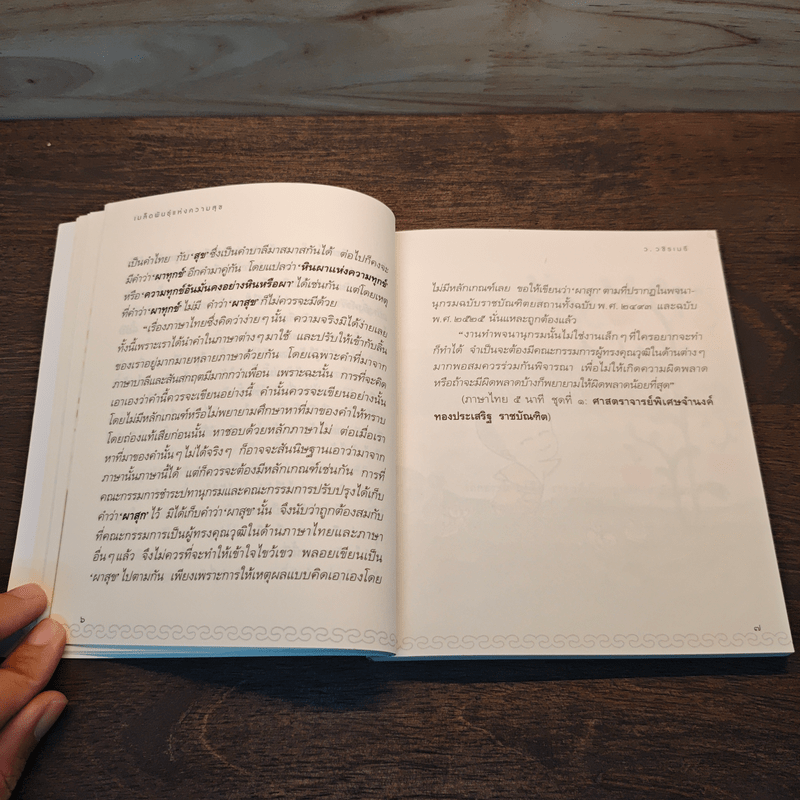 เมล็ดพันธุ์แห่งความสุข
เป็นคำไทย กับ 'สุข' ซึ่งเป็นคำบาลีมาสมาสกันได้ ต่อไปก็คงจะ
มีคำว่า 'ผาทุกข์' อีกคำมาคู่กัน โดยแปลว่า 'หินผาแห่งความทุกข์'
หรือ 'ความทุกข์อันมั่นคงอย่างหินหรือผา' ได้เช่นกัน แต่โดยเหตุ
ที่คำว่า 'ผาทุกข์' ไม่มี คำว่า 'ผาสุข' ก็ไม่ควรจะมีด้วย
"เรื่องภาษาไทยซึ่งคิดว่าง่ายๆ นั้น ความจริงมิได้ง่ายเลย
ทั้งนี้เพราะเราได้นำคำในภาษาต่างๆ มาใช้ และปรับให้เข้ากับลิ้น
ของเราอยู่มากมายหลายภาษาด้วยกัน โดยเฉพาะคำที่มาจาก
ภาษาบาลีและสันสกฤตมีมากกว่าเพื่อน เพราะฉะนั้น การที่จะคิด
เอาเองว่าคำนี้ควรจะเขียนอย่างนี้ คำนั้นควรจะเขียนอย่างนั้น
โดยไม่มีหลักเกณฑ์หรือไม่พยายามศึกษาหาที่มาของคำให้ทราบ
โดยถ่องแท้เสียก่อนนั้น หาชอบด้วยหลักภาษาไม่ ต่อเมื่อเรา
หาที่มาของคำนั้นๆ ไม่ได้จริงๆ ก็อาจจะสันนิษฐานเอาว่ามาจาก
ภาษานั้นภาษานี้ได้ แต่ก็ควรจะต้องมีหลักเกณฑ์เช่นกัน การที่
คณะกรรมการชำระปทานุกรมและคณะกรรมการปรับปรุงได้เก็บ
คำว่า 'ผาสุก' ไว้ มิได้เก็บคำว่า 'ผาสุข' นั้น จึงนับว่าถูกต้องสมกับ
ที่คณะกรรมการเป็นผู้ทรงคุณวุฒิในด้านภาษาไทยและภาษา
อื่นๆ แล้ว จึงไม่ควรที่จะทำให้เข้าใจไขว้เขว พลอยเขียนเป็น
'ผาสุข' ไปตามกัน เพียงเพราะการให้เหตุผลแบบคิดเอาเองโดย
๖
ว. วชิรเมธี
ไม่มีหลักเกณฑ์เลย ขอให้เขียนว่า 'ผาสุก' ตามที่ปรากฏในพจนา-
นุกรมฉบับราชบัณฑิตยสถานทั้งฉบับ พ.ศ. ๒๔๙๓ และฉบับ
พ.ศ. ๒๕๒๕ นั่นแหละถูกต้องแล้ว
"งานทำพจนานุกรมนั้นไม่ใช่งานเล็กๆ ที่ใครอยากจะทำ
ก็ทำได้ จำเป็นจะต้องมีคณะกรรมการผู้ทรงคุณวุฒิในด้านต่างๆ
มากพอสมควรร่วมกันพิจารณา เพื่อไม่ให้เกิดความผิดพลาด
หรือถ้าจะมีผิดพลาดบ้างก็พยายามให้ผิดพลาดน้อยที่สุด"
(ภาษาไทย ๕ นาที ชุดที่ ๑: ศาสตราจารย์พิเศษจำนงค์
ทองประเสริฐ ราชบัณฑิต)
๗